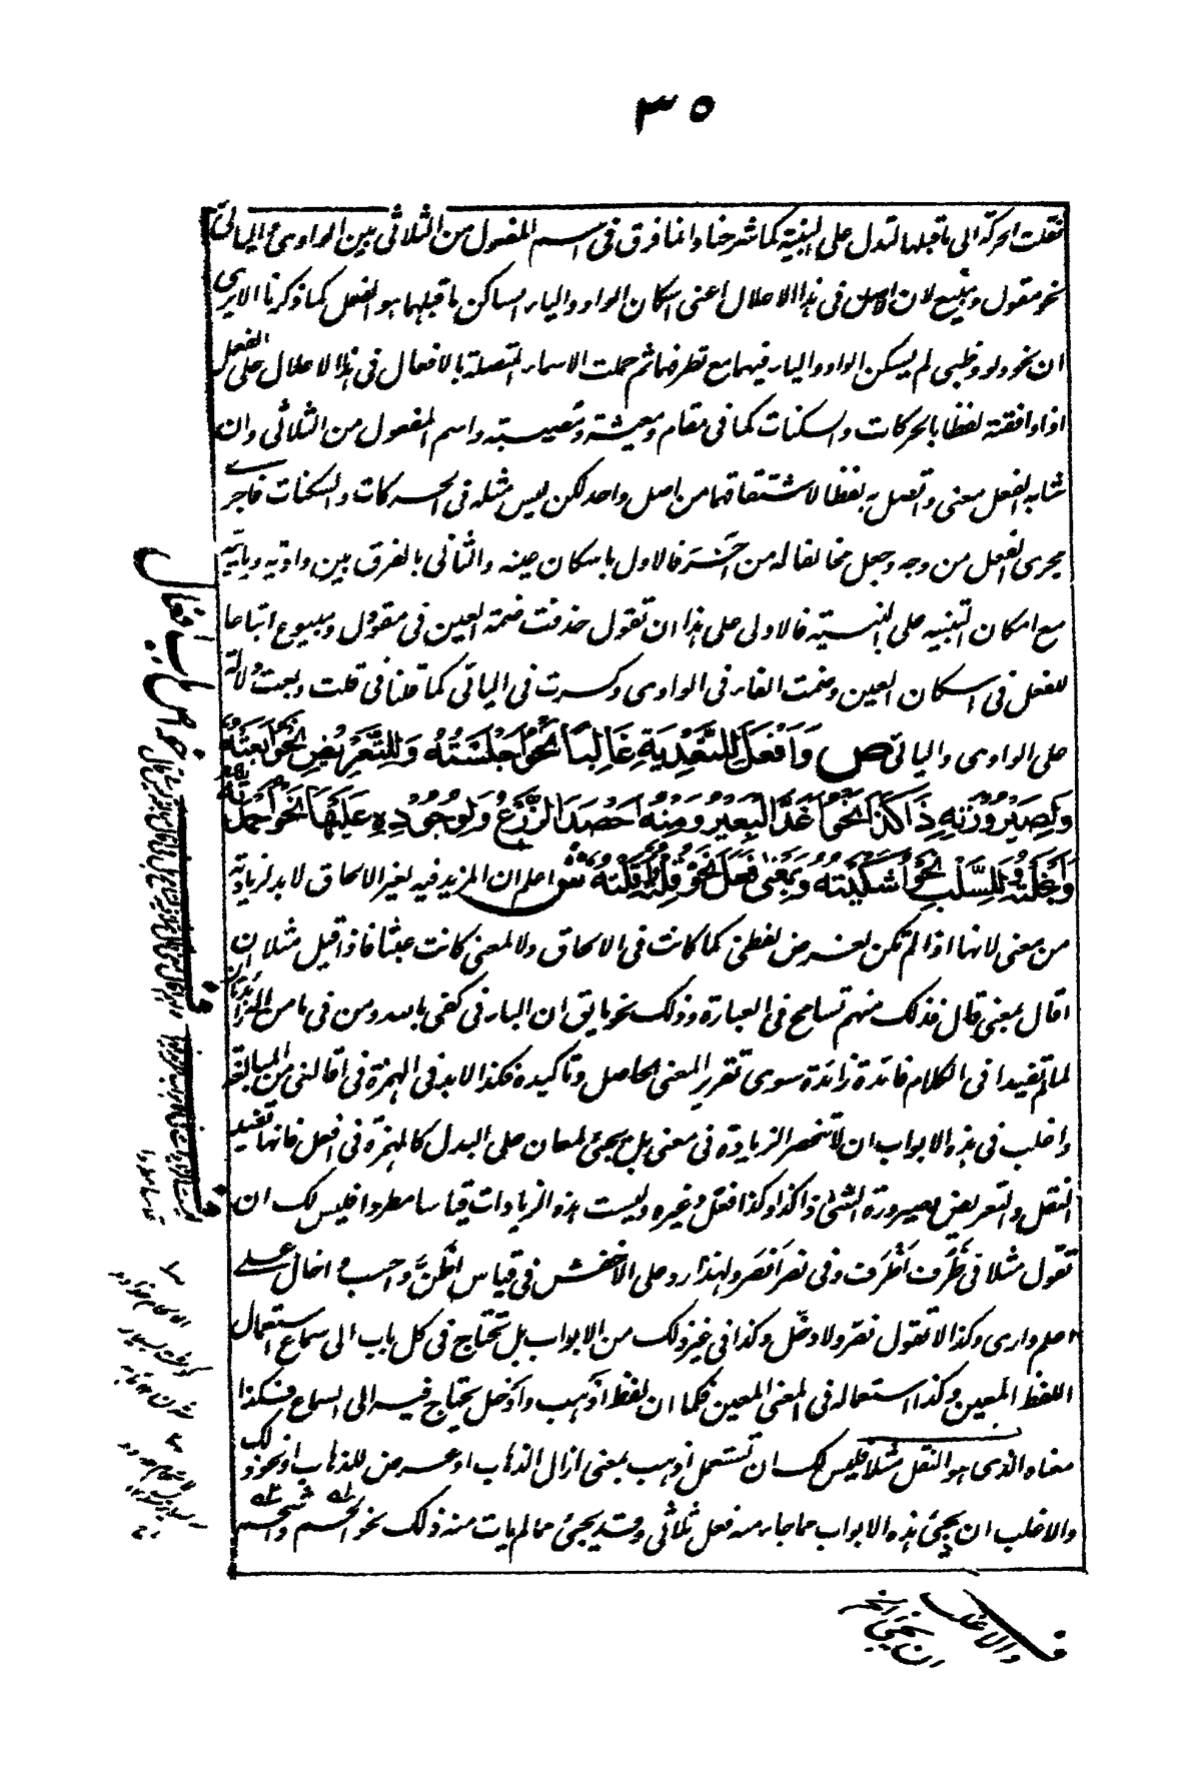 ٣٥
نقلت الحركة الى ما قبلها لتدل على البنية كما شرحنا وانما فرق فى اسم المفعول من الثلاثى بين الواوى واليائى
نحو مقول ومبيع لان الاصل فى هذا الاعلال اعنى اسكان الواو والياء الساكن ما قبلهما هو الفعل كما ذكرنا الا يرى
ان نحو دلو وظبى لم يسكن الواو والياء فيهما مع تطرفهما ثم حملت الاسماء المتصلة بالافعال فى هذا الاعلال على الفعل
اذا وافقته لفظا بالحركات والسكنات كما فى مقام ومعيشة ومصيبة واسم المفعول من الثلاثى وان
شابه الفعل معنى واتصل به لفظا لاشتقاقهما من اصل واحد لكن ليس مثله فى الحركات والسكنات فاجرى
مجرى الفعل من وجه وجعل مخالفا له من آخر فالاول باسكان عينه والثانى بالفرق بين واويه ويائيه
مع امكان التنبيه على البنية فالاولى على هذا ان تقول حذفت ضمة العين فى مقوول ومبيوع اتباعا
للفعل فى اسكان العين وضمت الفاء فى الواوى وكسرت فى اليائى كما قلنا فى قلت وبعت دلالة
على الواوى واليائى ص وَاَفْعَلَ لِلتَّعْدِيَةِ غَالِبًا نَحْوُ اَجْلَسْتُهُ وَلِلتَّعْرِيْضِ نَحْوُ اَبَعْتُهُ
وَلِصَيْرُوْرَتِهِ ذَا كَذَا نَحْوُ اَغَدَّ الْبَعِيْرُ وَمِنْهُ اَحْصَدَ الزَّرْعُ وَلِوُجُوْدِهِ عَلَيْهَا نَحْوُ اَحْمَدْتُهُ
وَاَبْخَلْتُهُ وَلِلسَّلْبِ نَحْوُ اَشْكَيْتُهُ وَبِمَعْنٰى فَعَلَ نَحْوُ قِلْتُهُ وَاَقَلْتُهُ ش اعلم ان المزيد فيه لغير الالحاق لا بد لزيادته
من معنى لانها اذا لم تكن لغرض لفظى كما كانت فى الالحاق ولا لمعنى كانت عبثا فاذا قيل مثلا ان
اقال بمعنى قال فذلك منهم تسامح فى العبارة وذلك نحو ما يق ان الباء فى كفى بالله ومن فى ما من اله زائدتان
لما لم تفيدا فى الكلام فائدة زائدة سوى تقرير المعنى الحاصل وتاكيده فكذا لا بد فى الهمزة فى اقالنى من المبالغة
واغلب فى هذه الابواب ان لا تنحصر الزيادة فى معنى بل تجئ لمعان على البدل كالهمزة فى افعل فانها تفيد
النقل والتعريض وصيرورة الشئ ذا كذا وكذا فعّل وغيره وليست هذه الزيادات قياسا مطردا فليس لك ان
تقول مثلا فى ظرف اظرف وفى نصر انصر ولهذا رد على الاخفش فى قياس اظن واحسب واخال على
اعلم وارى وكذا لا تقول نصّر ولا دخّل وكذا فى غير ذلك من الابواب بل تحتاج فى كل باب الى سماع استعمال
اللفظ المعين وكذا استعماله فى المعنى المعين فكما ان لفظ اذهب وادخل يحتاج فيه الى السماع فكذا
معناه الذى هو النقل مثلا فليس لك ان تستعمل اذهب بمعنى ازال الذهاب او عرض للذهاب او نحو ذلك
والاغلب ان تجئ هذه الابواب مما جاء منه فعل ثلاثى وقد يجئ مما لم يات منه ذلك نحو الحم واشحم
خاصيات باب افعال
والاغلب
ان تجئ الخ